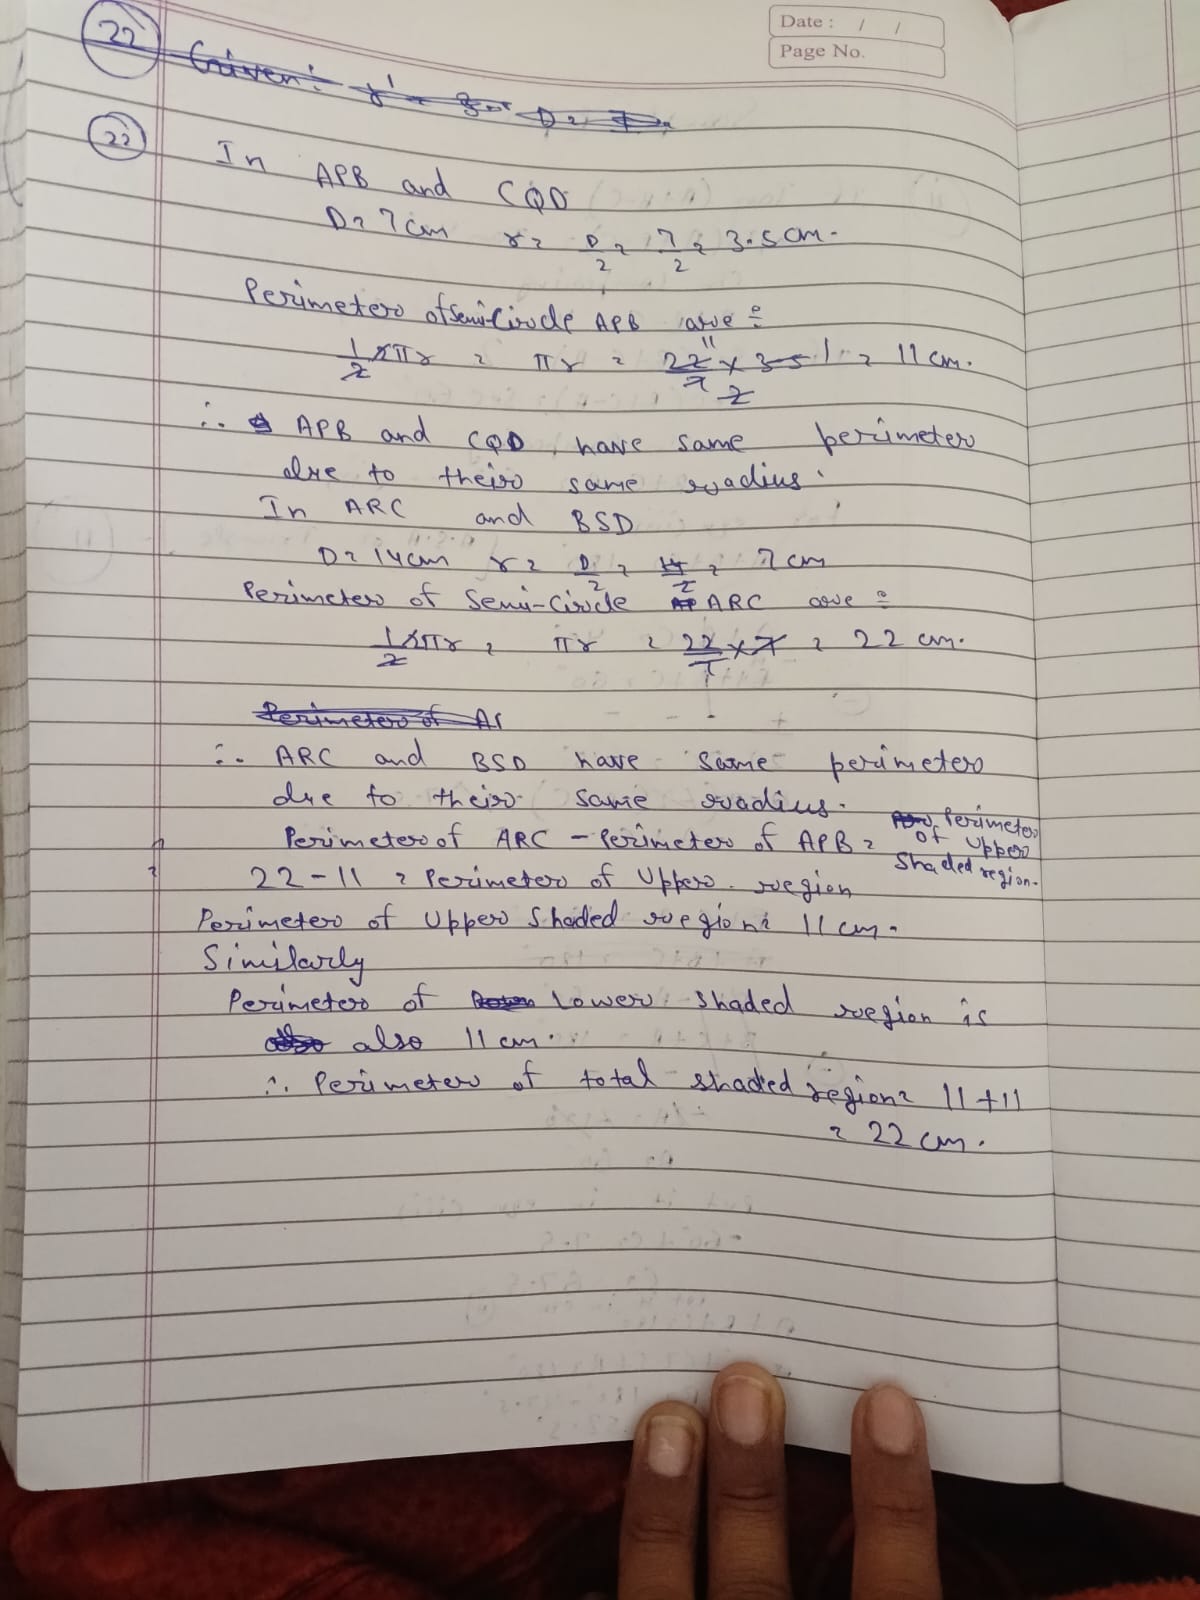 Date : / /
Page No.
22
Given :
22
In APB and CQD
D = 7 cm r = D/2 = 7/2 = 3.5 cm.
Perimeter of Semi-Circle APB arc =
1/2 2πr = πr = 22/7 × 35/ = 11 cm.
∴ APB and CQD have same perimeter
due to their same radius.
In ARC and BSD
D = 14 cm r = D/2 = 14/2 = 7 cm
Perimeter of Semi-Circle ARC arc =
1/2 2πr = πr = 22/7 × 7 = 22 cm.
Perimeter of Ar
∴ ARC and BSD have same perimeter
due to their same radius.
Perimeter of ARC - Perimeter of APB = Perimeter of Upper Shaded region.
22 - 11 = Perimeter of Upper region
Perimeter of Upper Shaded region = 11 cm.
Similarly
Perimeter of Lower shaded region is
also 11 cm.
∴ Perimeter of total shaded region = 11 + 11
= 22 cm.